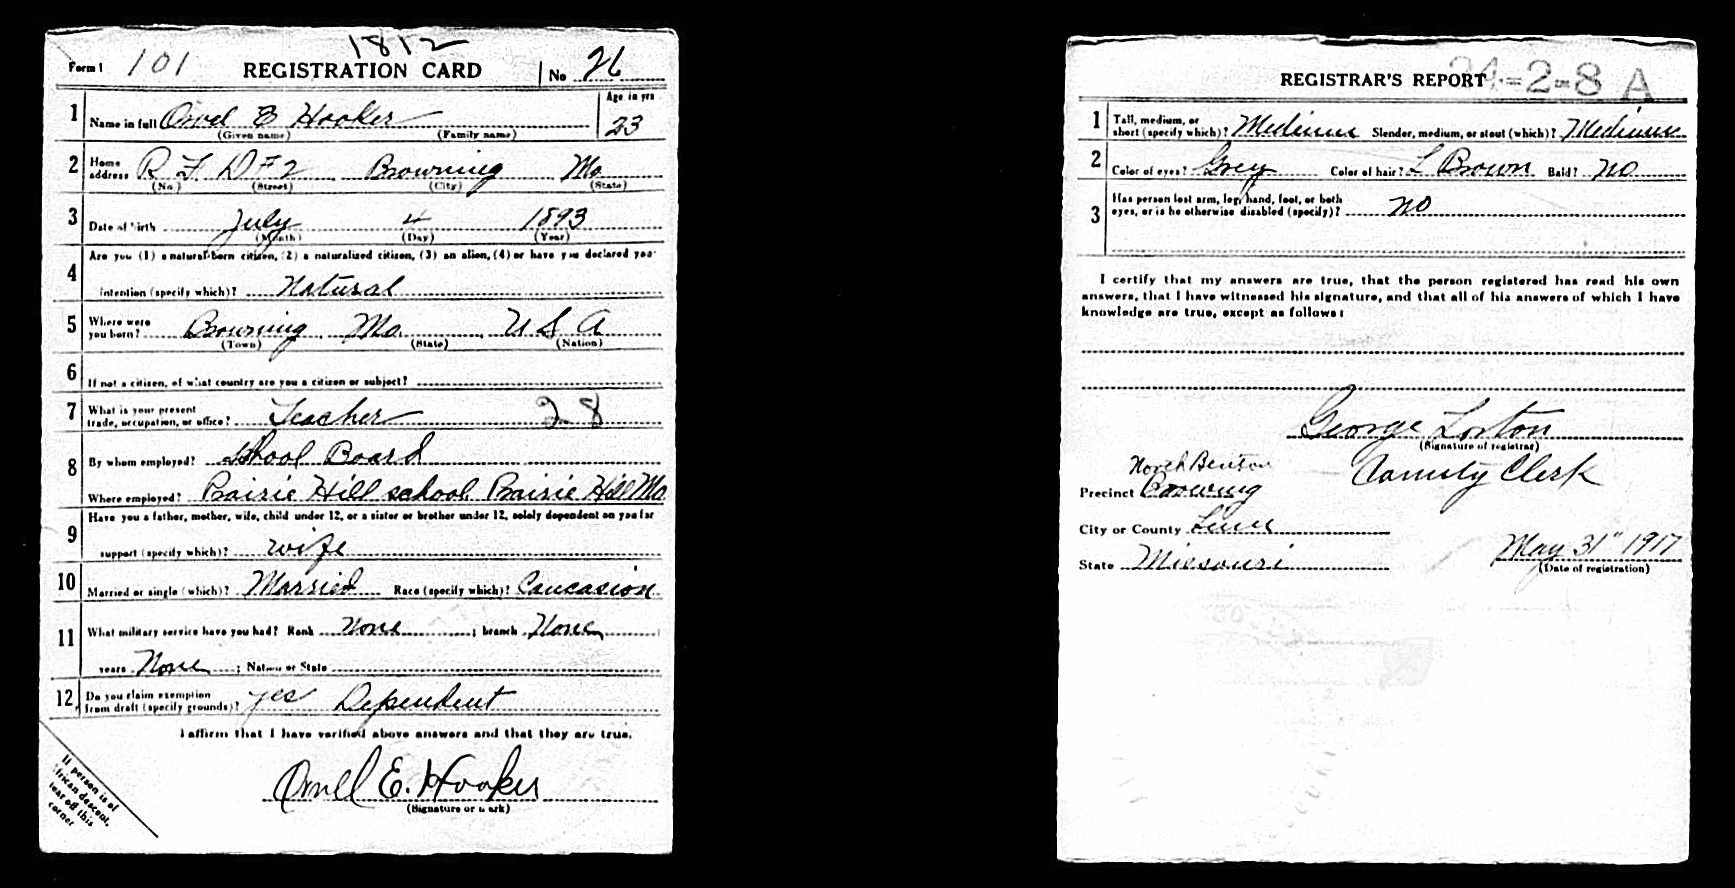 1812
Form 1 101 REGISTRATION CARD No 26
1 Name in full Orvel E Hooker Age in yrs 23
(Given name) (Family name)
2 Home address R F D # 2 Browning Mo
(No.) (Street) (City) (State)
3 Date of birth July 4 1893
(Month) (Day) (Year)
4 Are you (1) a natural-born citizen, (2) a naturalized citizen, (3) an alien, (4) or have you declared your
intention (specify which)? Natural
5 Where were you born? Browning, Mo., U S A
(Town) (State) (Nation)
6 If not a citizen, of what country are you a citizen or subject?
7 What is your present trade, occupation, or office? Teacher 28
8 By whom employed? School Board
Where employed? Prairie Hill school Prairie Hill Mo
9 Have you a father, mother, wife, child under 12, or a sister or brother under 12, solely dependent on you for
support (specify which)? Wife
10 Married or single (which)? Married Race (specify which)? Caucasion
11 What military service have you had? Rank None ; branch None ;
years None ; Nation or State
12 Do you claim exemption from draft (specify grounds)? Yes Dependent
I affirm that I have verified above answers and that they are true.
E. Hooker
(Signature or mark)
If person is of
African descent,
tear off this
corner
REGISTRAR'S REPORT 24-2-8 A
1 Tall, medium, or short (specify which)? Medium Slender, medium, or stout (which)? Medium
2 Color of eyes? Grey Color of hair? L Brown Bald? No
3 Has person lost arm, leg, hand, foot, or both
eyes, or is he otherwise disabled (specify)? No
I certify that my answers are true, that the person registered has read his own
answers, that I have witnessed his signature, and that all of his answers of which I have
knowledge are true, except as follows:
George Lorton
(Signature of registrar)
North Benton County Clerk
Precinct Browning
City or County Linn
State Missouri May 31" 1917
(Date of registration)